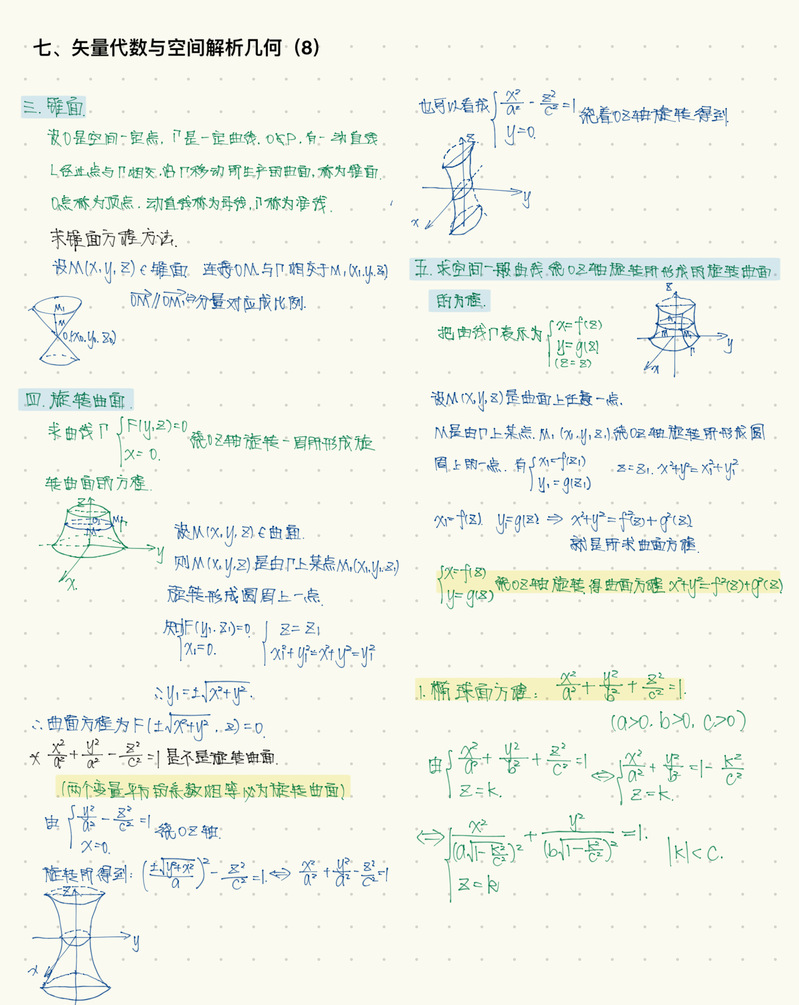 七、矢量代数与空间解析几何（8）
三.锥面.
设O是空间一定点，Γ是一定曲线. O∉Γ，有一动直线
L经过点与Γ相交，沿Γ移动所生产的曲面，称为锥面.
O点称为顶点. 动直线称为母线，Γ称为准线.
求锥面方程方法.
设M(x,y,z)∈锥面. 连接OM与Γ相交于M₁(x₁,y₁,z₁)
OM∥OM₁⇔分量对应成比例.
M₁
M
O(x₀,y₀,z₀)
四.旋转曲面.
求曲线Γ{F(y,z)=0 绕OZ轴旋转一周所形成旋
x=0.
转曲面的方程.
Z
M₁
M
y
x
设M(x,y,z)∈曲面.
则M(x,y,z)是由Γ上某点M₁(x₁,y₁,z₁)
旋转形成圆周上一点.
知{F(y₁,z₁)=0 {z=z₁
x₁=0. x₁²+y₁²=x²+y²=y₁²
∴y₁=±√(x²+y²).
∴曲面方程为F(±√(x²+y²),z)=0.
x²/a²+y²/a²-z²/c²=1是不是旋转曲面.
(两个变量平方的系数相等必为旋转曲面)
由{y²/a²-z²/c²=1 绕OZ轴.
x=0.
旋转所得到：(±√(y²+x²)/a)²-z²/c²=1⇔x²/a²+y²/a²-z²/c²=1
Z
y
x
也可以看成{x²/a²-z²/c²=1 绕着OZ轴旋转得到
y=0.
z
y
x
五.求空间一般曲线绕OZ轴旋转所形成的旋转曲面
的方程.
把曲线Γ表示为{x=f(z)
y=g(z)
(z=z)
z
M
Γ
y
x
设M(x,y,z)是曲面上任意一点.
M是由Γ上某点.M₁(x₁,y₁,z₁)绕OZ轴旋转所形成圆
周上的一点. 有{x₁=f(z₁) z=z₁. x²+y²=x₁²+y₁²
y₁=g(z₁)
x₁=f(z) y=g(z) ⇒ x²+y²=f²(z)+g²(z)
就是所求曲面方程.
{x=f(z) 绕OZ轴旋转得曲面方程 x²+y²=f²(z)+g²(z)
y=g(z)
1.椭球面方程：x²/a²+y²/b²+z²/c²=1.
(a>0.b>0,c>0)
由{x²/a²+y²/b²+z²/c²=1 ⇔{x²/a²+y²/b²=1-k²/c²
z=k. z=k.
⇔{x²/(a√(1-k²/c²))²+y²/(b√(1-k²/c²))²=1. |k|<c.
z=k